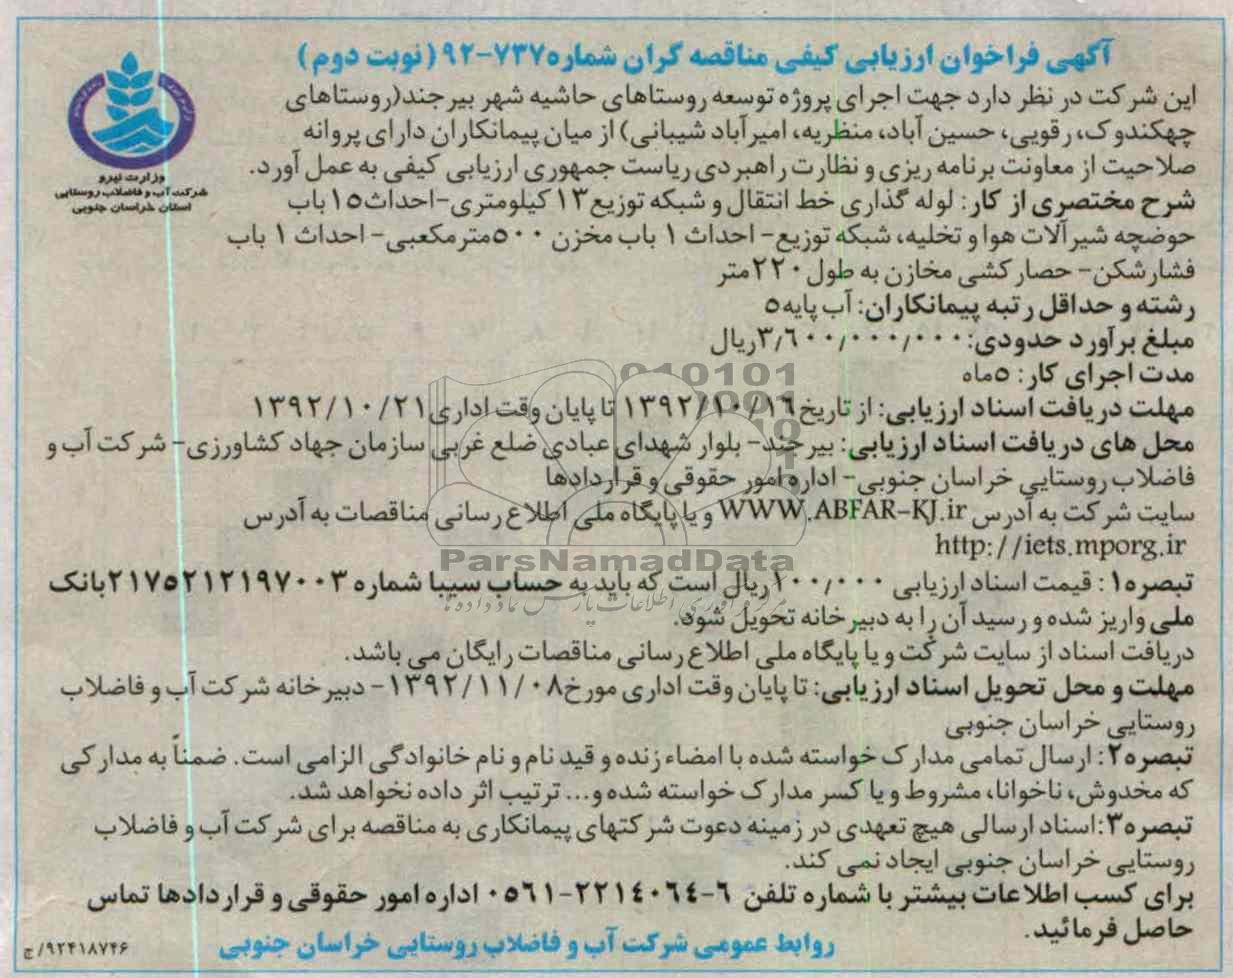 آگهی فراخوان ارزیابی کیفی مناقصه گران شماره ۷۳۷-۹۲ (نوبت دوم)
وزارت نیرو
شرکت آب و فاضلاب روستایی
استان خراسان جنوبی
این شرکت در نظر دارد جهت اجرای پروژه توسعه روستاهای حاشیه شهر بیرجند(روستاهای
چهکندوک، رقویی، حسین آباد، منظریه، امیرآباد شیبانی) از میان پیمانکاران دارای پروانه
صلاحیت از معاونت برنامه ریزی و نظارت راهبردی ریاست جمهوری ارزیابی کیفی به عمل آورد.
شرح مختصری از کار: لوله گذاری خط انتقال و شبکه توزیع ۱۳ کیلومتری-احداث ۱۵ باب
حوضچه شیرآلات هوا و تخلیه، شبکه توزیع- احداث ۱ باب مخزن ۵۰۰ مترمکعبی- احداث ۱ باب
فشارشکن- حصارکشی مخازن به طول ۲۲۰ متر
رشته و حداقل رتبه پیمانکاران: آب پایه ۵
مبلغ برآورد حدودی: ۳٫۶۰۰٫۰۰۰٫۰۰۰ ریال
مدت اجرای کار: ۵ ماه
مهلت دریافت اسناد ارزیابی: از تاریخ ۱۳۹۲/۱۰/۱۶ تا پایان وقت اداری ۱۳۹۲/۱۰/۲۱
محل های دریافت اسناد ارزیابی: بیرجند- بلوار شهدای عبادی ضلع غربی سازمان جهاد کشاورزی- شرکت آب و
فاضلاب روستایی خراسان جنوبی- اداره امور حقوقی و قراردادها
سایت شرکت به آدرس WWW.ABFAR-KJ.ir و یا پایگاه ملی اطلاع رسانی مناقصات به آدرس
http://iets.mporg.ir
ParsNamadData
تبصره۱: قیمت اسناد ارزیابی ۱۰۰٫۰۰۰ ریال است که باید به حساب سیبا شماره ۲۱۷۵۲۱۲۱۹۷۰۰۳ بانک
ملی واریز شده و رسید آن را به دبیرخانه تحویل شود.
دریافت اسناد از سایت شرکت و یا پایگاه ملی اطلاع رسانی مناقصات رایگان می باشد.
مهلت و محل تحویل اسناد ارزیابی: تا پایان وقت اداری مورخ ۱۳۹۲/۱۱/۰۸- دبیرخانه شرکت آب و فاضلاب
روستایی خراسان جنوبی
تبصره۲: ارسال تمامی مدارک خواسته شده با امضاء زنده و قید نام و نام خانوادگی الزامی است. ضمناً به مدارکی
که مخدوش، ناخوانا، مشروط و یا کسر مدارک خواسته شده و... ترتیب اثر داده نخواهد شد.
تبصره۳: اسناد ارسالی هیچ تعهدی در زمینه دعوت شرکتهای پیمانکاری به مناقصه برای شرکت آب و فاضلاب
روستایی خراسان جنوبی ایجاد نمی کند.
برای کسب اطلاعات بیشتر با شماره تلفن ۶-۲۲۱۴۰۶۴-۰۵۶۱ اداره امور حقوقی و قراردادها تماس
حاصل فرمائید.
روابط عمومی شرکت آب و فاضلاب روستایی خراسان جنوبی
۹۲۴۱۸۷۴۶/ج